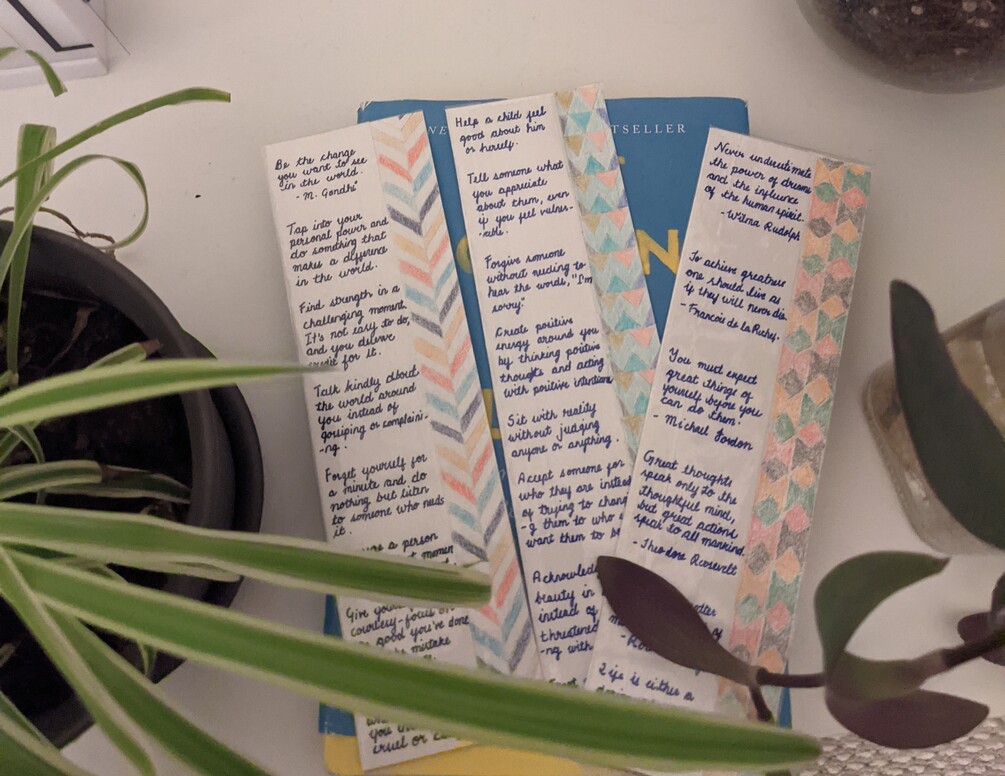 TSELLER
N
Be the change
you want to see
in the world.
- M. Gandhi
Tap into your
personal power and
do something that
makes a difference
in the world.
Find strength in a
challenging moment.
It's not easy to do,
and you deserve
credit for it.
Talk kindly about
the world around
you instead of
gossiping or complaini-
-ng.
Forget yourself for
a minute and do
nothing but listen
to someone who needs
it.
a person
Give
courtesy-focus on
good you've done
mistake
cruel or
Help a child feel
good about him
or herself.
Tell someone what
you appreciate
about them, even
if you feel vulner-
-able.
Forgive someone
without needing to
hear the words, "I'm
sorry."
Create positive
energy around you
by thinking positive
thoughts and acting
with positive intentions
Sit with reality
without judging
anyone or anything.
Accept someone for
who they are instead
of trying to chang
-g them to who
want them to be
Acknowled
beauty in
instead of
threatened
-ng with
Never underestimate
the power of dreams
and the influence
of the human spirit.
- Wilma Rudolph
To achieve greatness
one should live as
if they will never die.
- Francois de La
You must expect
great things of
yourself before you
can do them.
- Michael Jordon
Great thoughts
speak only to the
thoughtful mind,
but great actions
speak to all mankind.
- Theodore Roosevelt
Life is either a